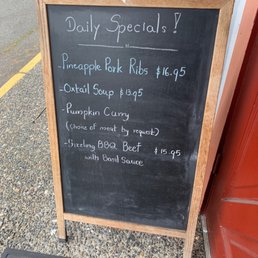 Daily Specials!
- Pineapple Pork Ribs $16.95
- Oxtail Soup $13.95
- Pumpkin Curry
(choice of meat by request)
- Sizzling BBQ Beef $15.95
with Basil Sauce